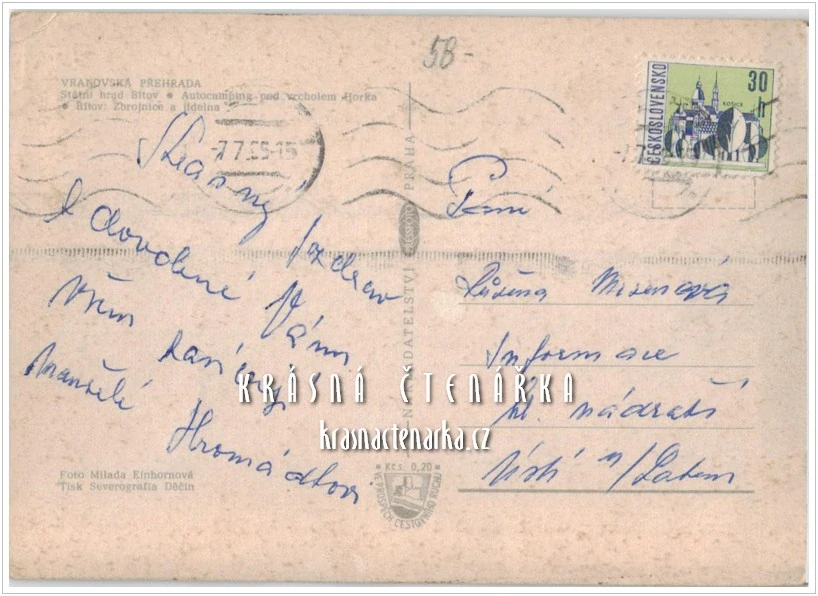 58-
VRANOVSKÁ PŘEHRADA
Státní hrad Bítov • Autocamping pod vrcholem Horka
• Bítov: Zbrojnice a jídelna
-7.7.65-15
ČESKOSLOVENSKO
30 h
KOŠICE
-7.7.
Krásný pozdrav
z dovolené Vám
všem
manželé Hromádkovi
NAKLADATELSTVÍ PRESSFOTO PRAHA
Paní
Růžena
Informace
hl. nádraží
Ústí n/Labem
KRÁSNÁ ČTENÁŘKA
krasnactenarka.cz
Foto Milada Einhornová
Tisk Severografia Děčín
• Kčs. 0,20 •
VE PROSPĚCH CESTOVNÍHO RUCHU